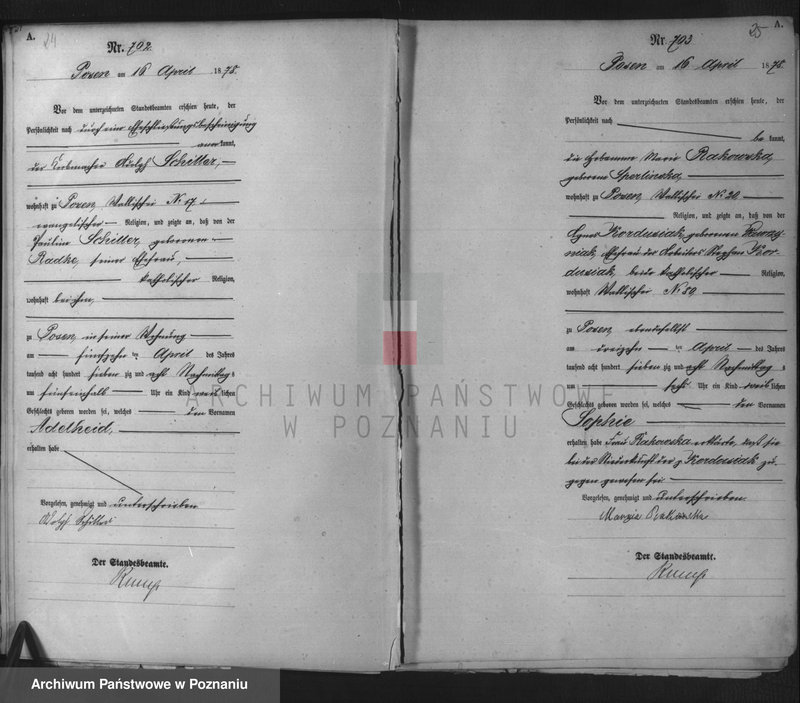 A. 24
Nr. 792.
Posen am 16 April 1878.
Vor dem unterzeichneten Standesbeamten erschien heute, der
Persönlichkeit nach durch eine Eheschließungsbescheinigung
anerkannt,
der Adolph Schiller,
wohnhaft zu Posen, Wallischei No 57
evangelischer Religion, und zeigte an, daß von der
Pauline Schiller, geborenen
Radke, seiner Ehefrau,
katholischer Religion,
wohnhaft bei ihm,
zu Posen, in seiner Wohnung
am fünfzehnten April des Jahres
tausend acht hundert sieben zig und acht Nachmittag s
um Uhr ein Kind weiblichen
Geschlechts geboren worden sei, welches den Vornamen
Adelheid,
erhalten habe
Vorgelesen, genehmigt und unterschrieben
Adolph Schiller
Der Standesbeamte.
25 A.
Nr. 793
Posen am 16 April 1878.
Vor dem unterzeichneten Standesbeamten erschien heute, der
Persönlichkeit nach
be kannt,
die Hebamme Marie Rakowska,
geborene
wohnhaft zu Posen, Wallischei No
Religion, und zeigte an, daß von der
Agnes Kordusiak, geborenen
Ehefrau des Arbeiters Stephan Kor-
dusiak, beide katholischer Religion,
wohnhaft Wallischei No 59
zu Posen, ebendaselbst
am dreizehn ten April des Jahres
tausend acht hundert sieben zig und acht Nachmittag s
um sechs Uhr ein Kind weiblichen
Geschlechts geboren worden sei, welches den Vornamen
Sophie
erhalten habe Frau Rakowska erklärte, daß sie
bei der Niederkunft der p Kordusiak zu-
gegen gewesen sei
Vorgelesen, genehmigt und unterschrieben
Marya Rakowska
Der Standesbeamte.
ARCHIWUM PAŃSTWOWE
W POZNANIU
Archiwum Państwowe w Poznaniu